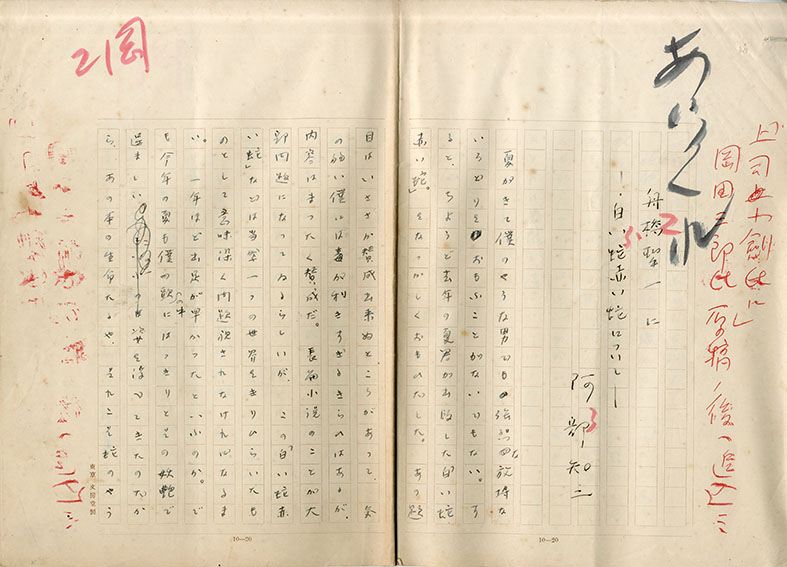 岡田三郎氏原稿ノ後ヘ追込ミ
舟橋聖一に
―白い蛇赤い蛇について―
阿部知二
夏がきて僕のやうな男でも強烈で放埓な
いろどりをおもふことがないでもない。す
ると、ちようど去年の夏君が出版した「白い蛇
赤い蛇」をなつかしくおもひだした。あの題
目はいささか賛成出来ぬところがあつて、気
の弱い僕には毒が利きすぎるきらひはあるが、
内容はまつたく賛成だ。長篇小説のことが大
部問題になつてゐるらしいが、この「白い蛇赤
い蛇」などは当然一つの世界をきりひらいたも
のとして意味深く問題視されなければなるま
い。一年ほど出足が早かつたといふのか。で
も今年の夏も僕の眼にははつきりとその妖艶で
逞ましい姿を浮べてきたのだか
ら、あの本の生命たるや、それこそ蛇のやう
10—20
10—20
東京 文房堂製